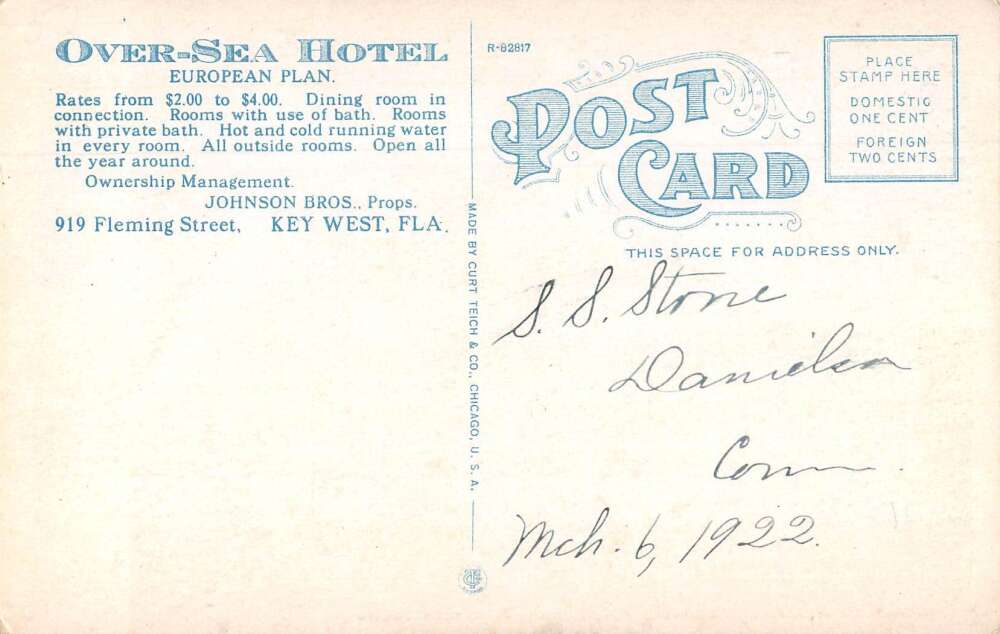 OVER-SEA HOTEL
EUROPEAN PLAN.
Rates from $2.00 to $4.00. Dining room in
connection. Rooms with use of bath. Rooms
with private bath. Hot and cold running water
in every room. All outside rooms. Open all
the year around.
Ownership Management.
JOHNSON BROS., Props.
919 Fleming Street, KEY WEST, FLA.
MADE BY CURT TEICH & CO., CHICAGO, U. S. A.
R-82817
POST CARD
PLACE
STAMP HERE
DOMESTIC
ONE CENT
FOREIGN
TWO CENTS
THIS SPACE FOR ADDRESS ONLY.
S. S. Stone
Danielson
Conn.
Mch. 6, 1922.